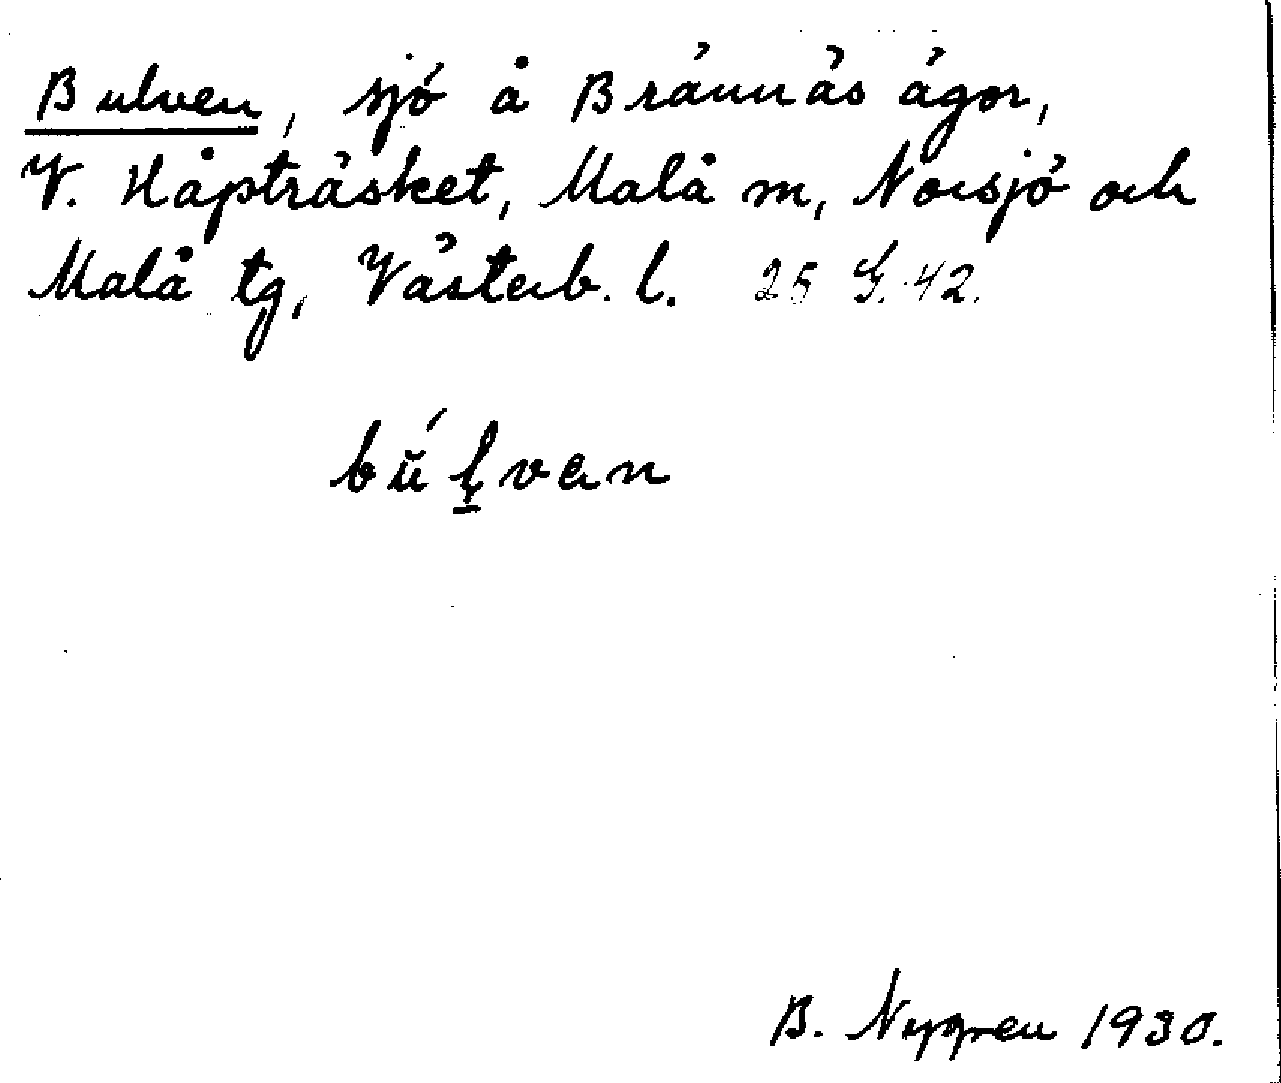 Bulven, sjö å Brännäs ägor,
V. Håpträsket, Malå m, Norsjö och
Malå tg, Västerb. l. 25 G. 42.
bŭ́l̥van
B. Nygren 1930.